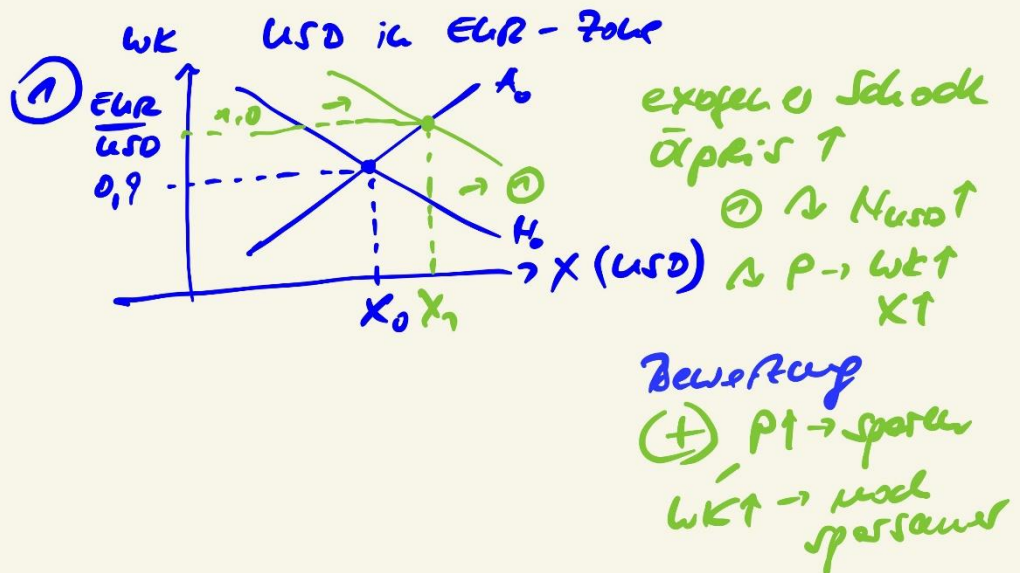 WK USD in EUR-Zone
① EUR
USD
1,0
0,9
A₀
→
→ ①
N₀
X (USD)
X₀ X₁
exogener Schock
Ölpreis ↑
① ↷ N USD ↑
↷ P → WK ↑
X ↑
Bewertung
(+) P↑ → sparen
WK↑ → noch
sparsamer